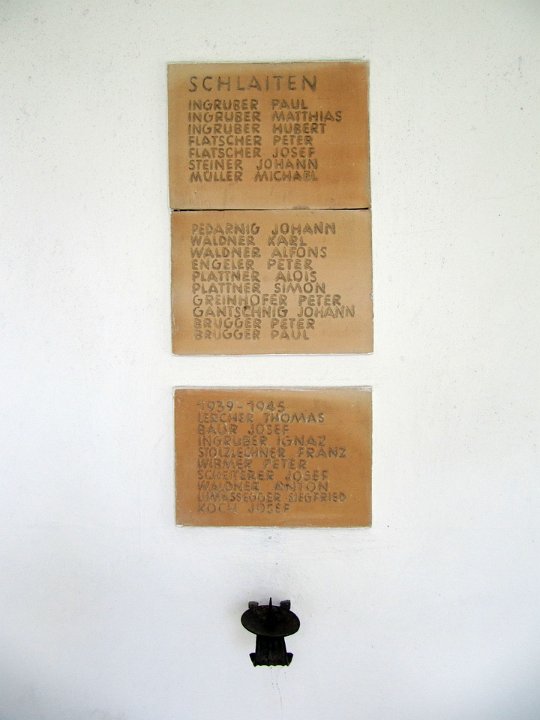 SCHLAITEN
INGRUBER PAUL
INGRUBER MATTHIAS
INGRUBER HUBERT
FLATSCHER PETER
FLATSCHER JOSEF
STEINER JOHANN
MÜLLER MICHAEL
PEDARNIG JOHANN
WALDNER KARL
WALDNER ALFONS
ENGELER PETER
PLATTNER ALOIS
PLATTNER SIMON
GREINHOFER PETER
GANTSCHNIG JOHANN
BRUGGER PETER
BRUGGER PAUL
1939-1945
LERCHER THOMAS
BAUR JOSEF
INGRUBER IGNAZ
STOLZLECHNER FRANZ
WIRMER PETER
JOSEF
WALDNER ANTON
SIEGFRIED
KOCH JOSEF